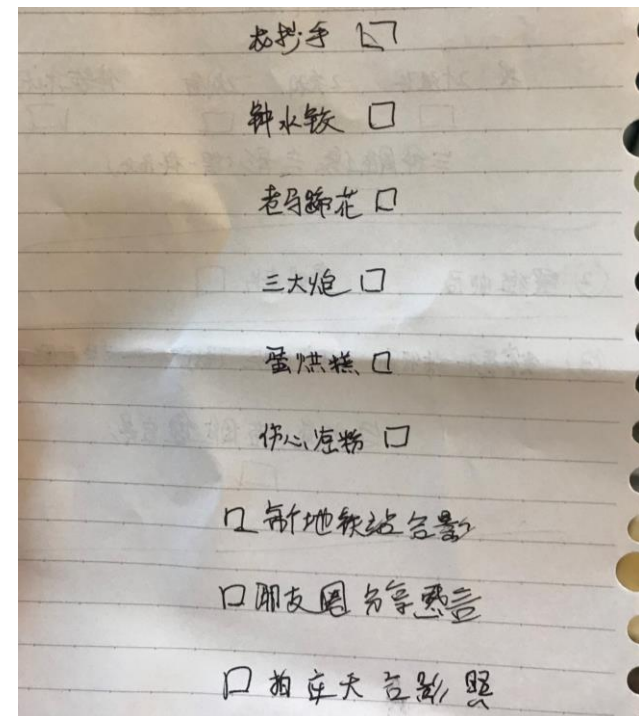 龙抄手 □
钟水饺 □
老马蹄花 □
三大炮 □
蛋烘糕 □
伤心凉粉 □
□ 地铁站合影
□ 朋友圈分享感言
□ 拍 合影照